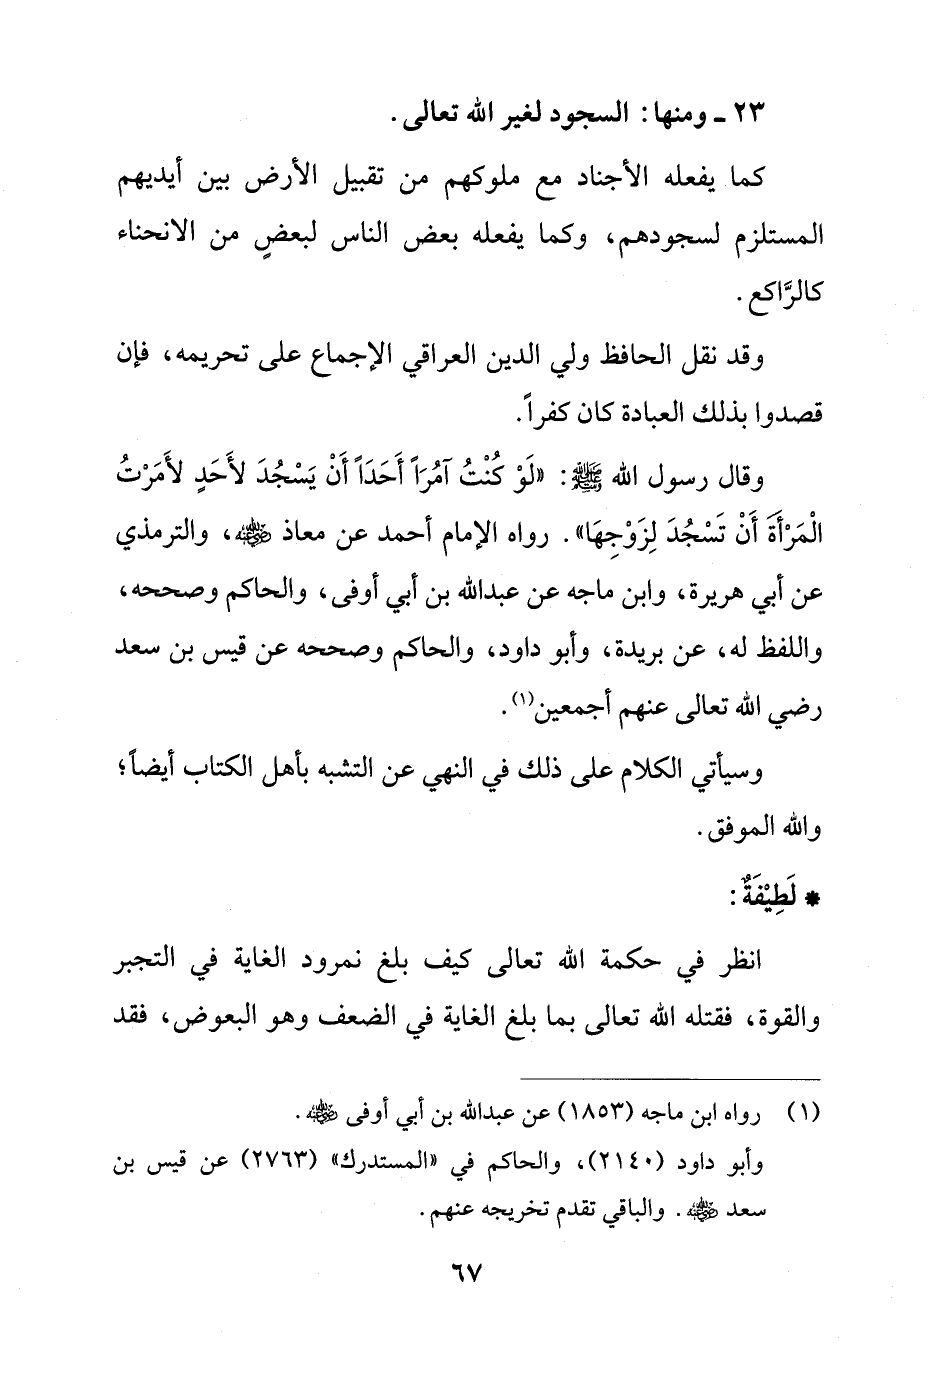 ٢٣ ـ ومنها: السجود لغير الله تعالى.
كما يفعله الأجناد مع ملوكهم من تقبيل الأرض بين أيديهم
المستلزم لسجودهم، وكما يفعله بعض الناس لبعضٍ من الانحناء
كالرَّاكع.
وقد نقل الحافظ ولي الدين العراقي الإجماع على تحريمه، فإن
قصدوا بذلك العبادة كان كفراً.
وقال رسول الله ﷺ: «لَوْ كُنْتُ آمُرَاً أَحَدَاً أَنْ يَسْجُدَ لأَحَدٍ لأَمَرْتُ
الْمَرْأَةَ أَنْ تَسْجُدَ لِزَوْجِهَا». رواه الإمام أحمد عن معاذ رضي الله عنه، والترمذي
عن أبي هريرة، وابن ماجه عن عبدالله بن أبي أوفى، والحاكم وصححه،
واللفظ له، عن بريدة، وأبو داود، والحاكم وصححه عن قيس بن سعد
رضي الله تعالى عنهم أجمعين(١).
وسيأتي الكلام على ذلك في النهي عن التشبه بأهل الكتاب أيضاً؛
والله الموفق.
* لَطِيْفَةٌ:
انظر في حكمة الله تعالى كيف بلغ نمرود الغاية في التجبر
والقوة، فقتله الله تعالى بما بلغ الغاية في الضعف وهو البعوض، فقد
(١) رواه ابن ماجه (١٨٥٣) عن عبدالله بن أبي أوفى رضي الله عنه.
وأبو داود (٢١٤٠)، والحاكم في «المستدرك» (٢٧٦٣) عن قيس بن
سعد رضي الله عنه. والباقي تقدم تخريجه عنهم.
٦٧